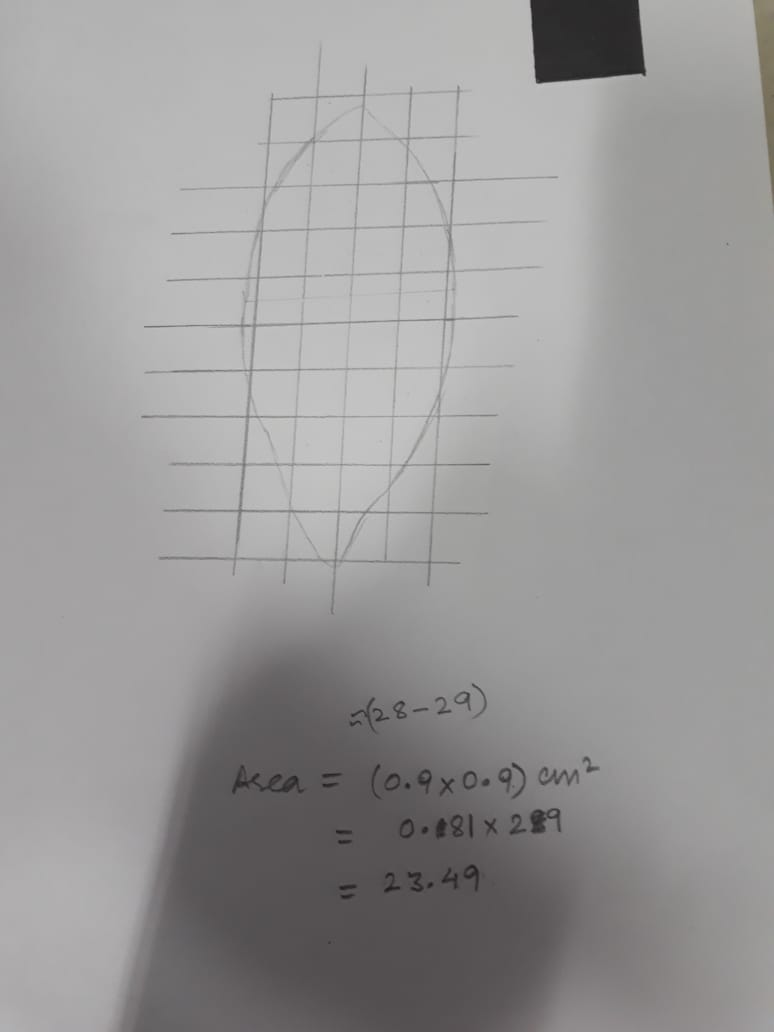 ≈(28-29)
Area = (0.9×0.9) cm²
= 0.81×29
= 23.49